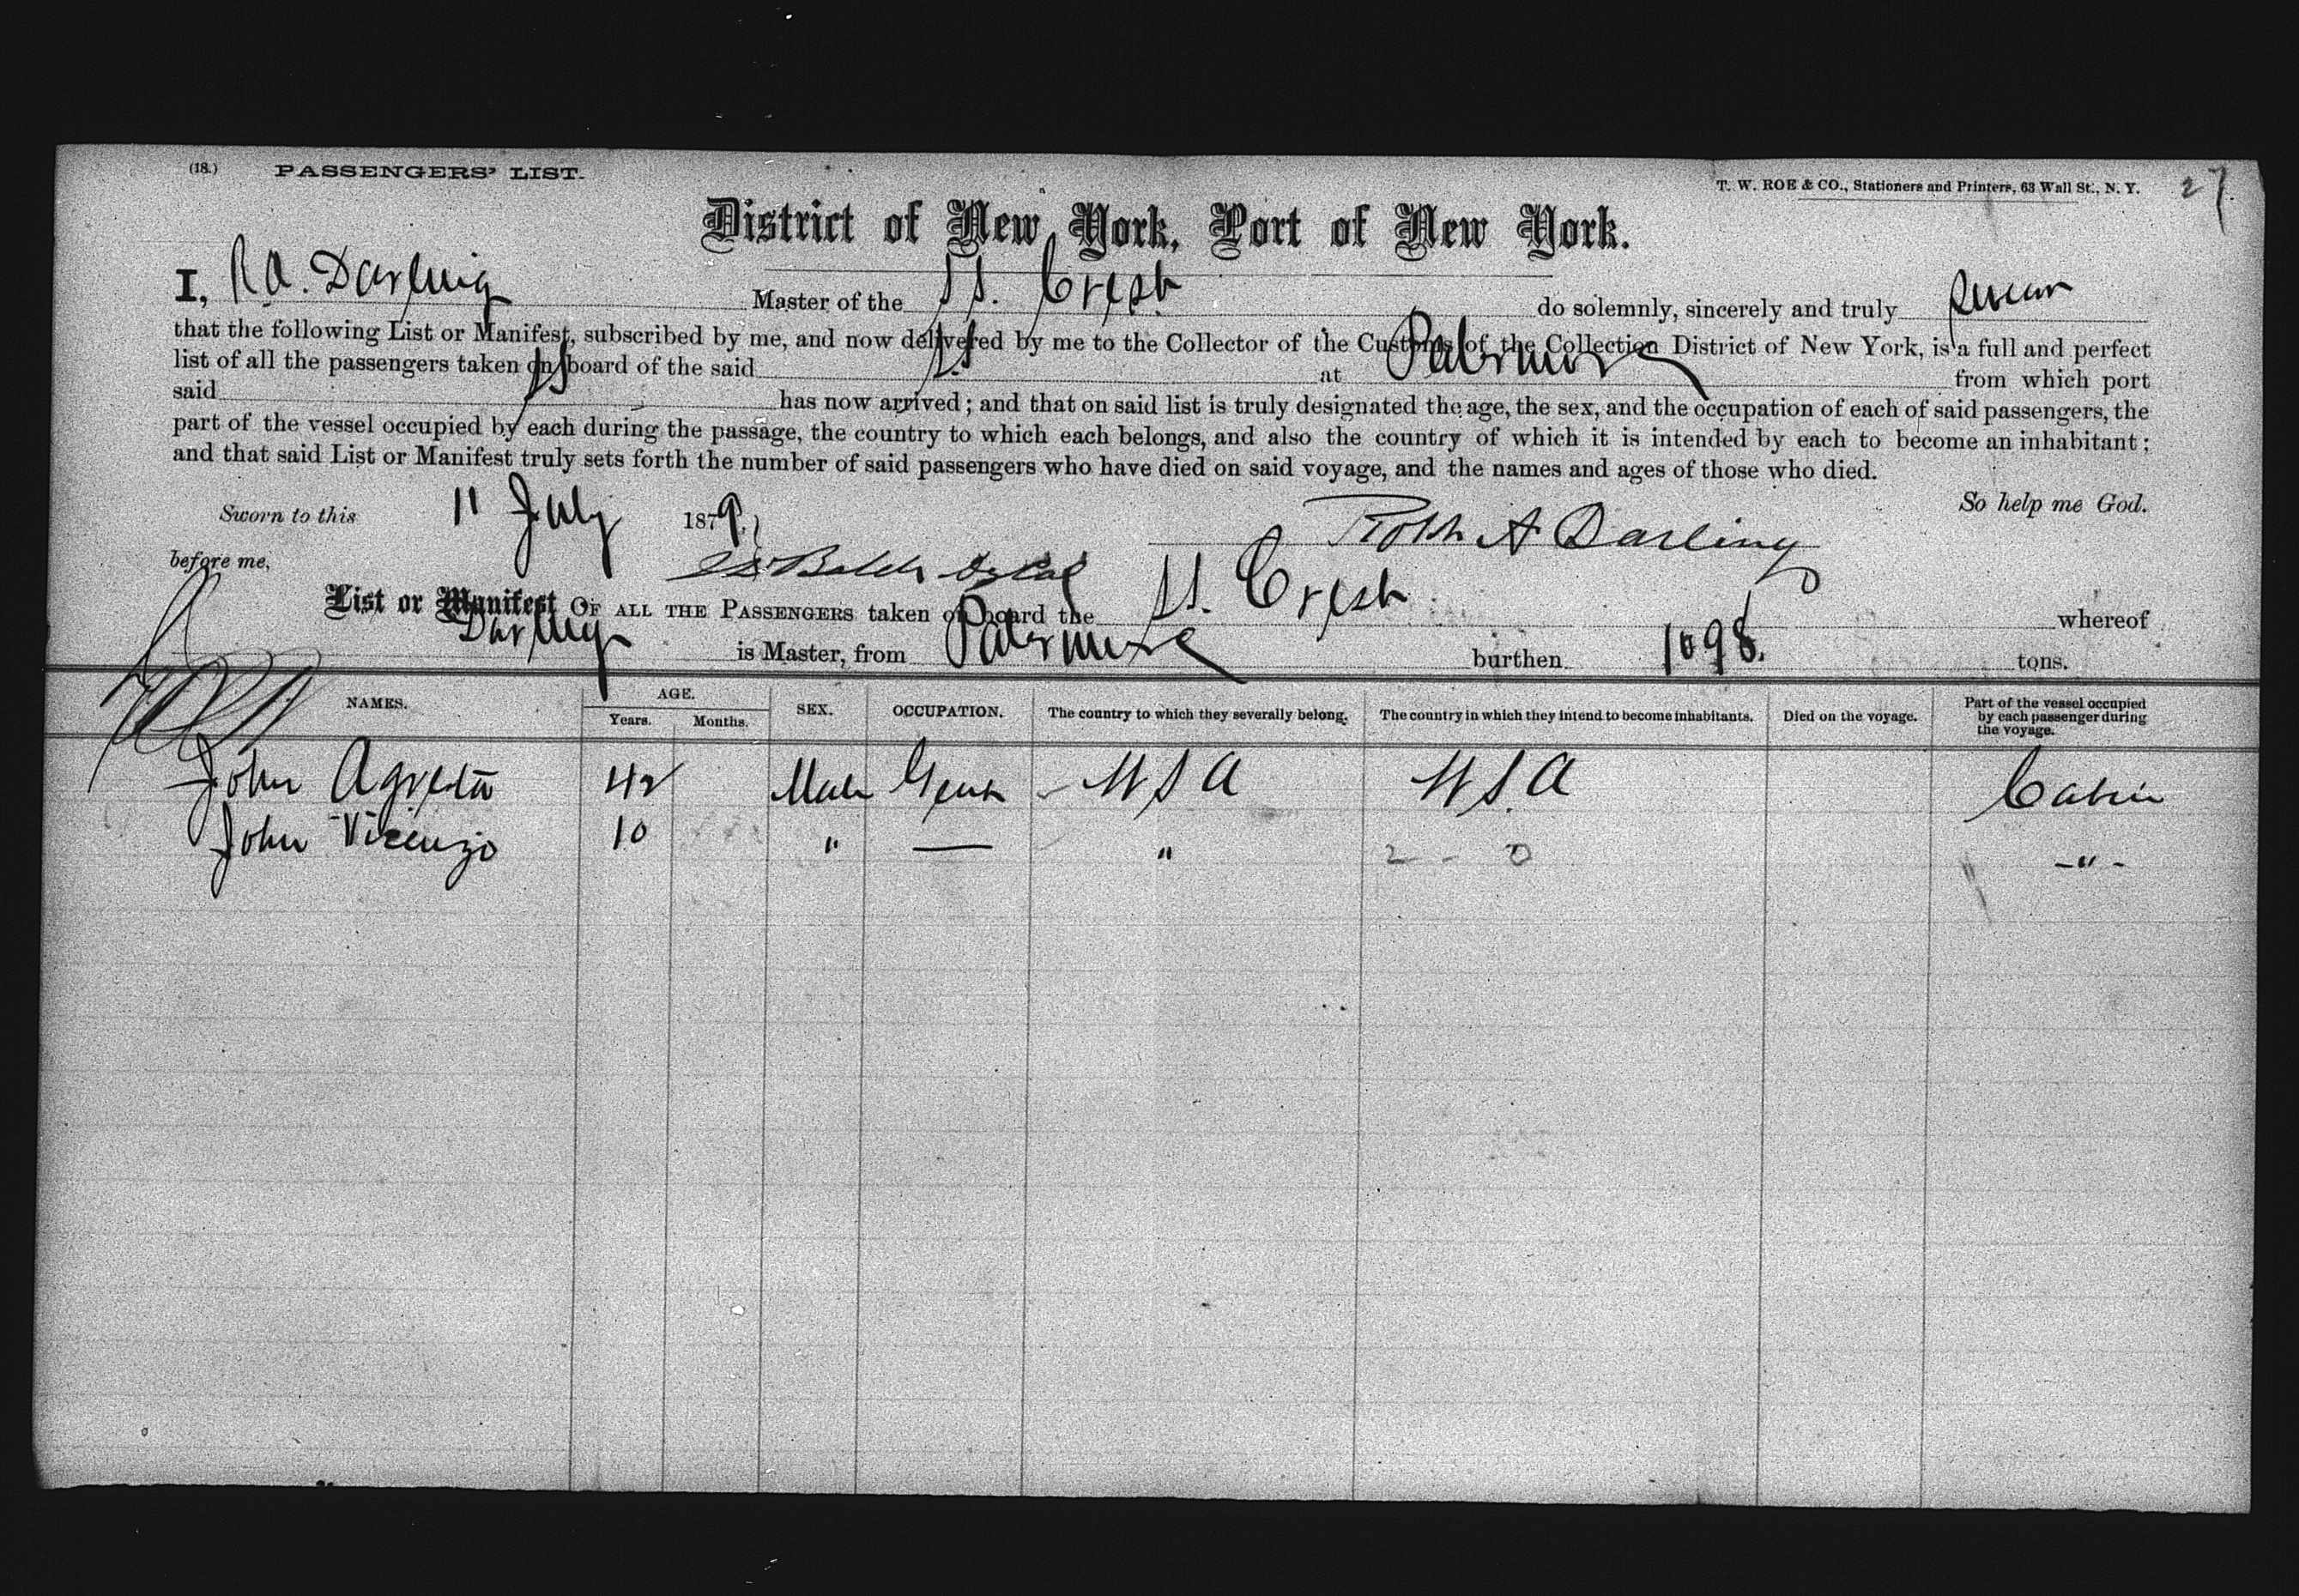 (18.) PASSENGERS' LIST. T. W. ROE & CO., Stationers and Printers, 63 Wall St., N. Y. 27
District of New York, Port of New York.
I, R.A. Darling Master of the SS. Crest do solemnly, sincerely and truly Swear
that the following List or Manifest, subscribed by me, and now delivered by me to the Collector of the Customs of the Collection District of New York, is a full and perfect
list of all the passengers taken on board of the said SS at Palermo from which port
said SS has now arrived; and that on said list is truly designated the age, the sex, and the occupation of each of said passengers, the
part of the vessel occupied by each during the passage, the country to which each belongs, and also the country of which it is intended by each to become an inhabitant;
and that said List or Manifest truly sets forth the number of said passengers who have died on said voyage, and the names and ages of those who died.
So help me God.
Sworn to this 11 July 1879.
Robt A Darling
before me,
List or Manifest OF ALL THE PASSENGERS taken on board the SS. Crest whereof
Darling is Master, from Palermo burthen 1098. tons.
NAMES. AGE. Years. Months. SEX. OCCUPATION. The country to which they severally belong. The country in which they intend to become inhabitants. Died on the voyage. Part of the vessel occupied by each passenger during the voyage.
John Agresta 42 Male Gent U S A U S. A Cabin
John Vicenzo 10 " — " -"-